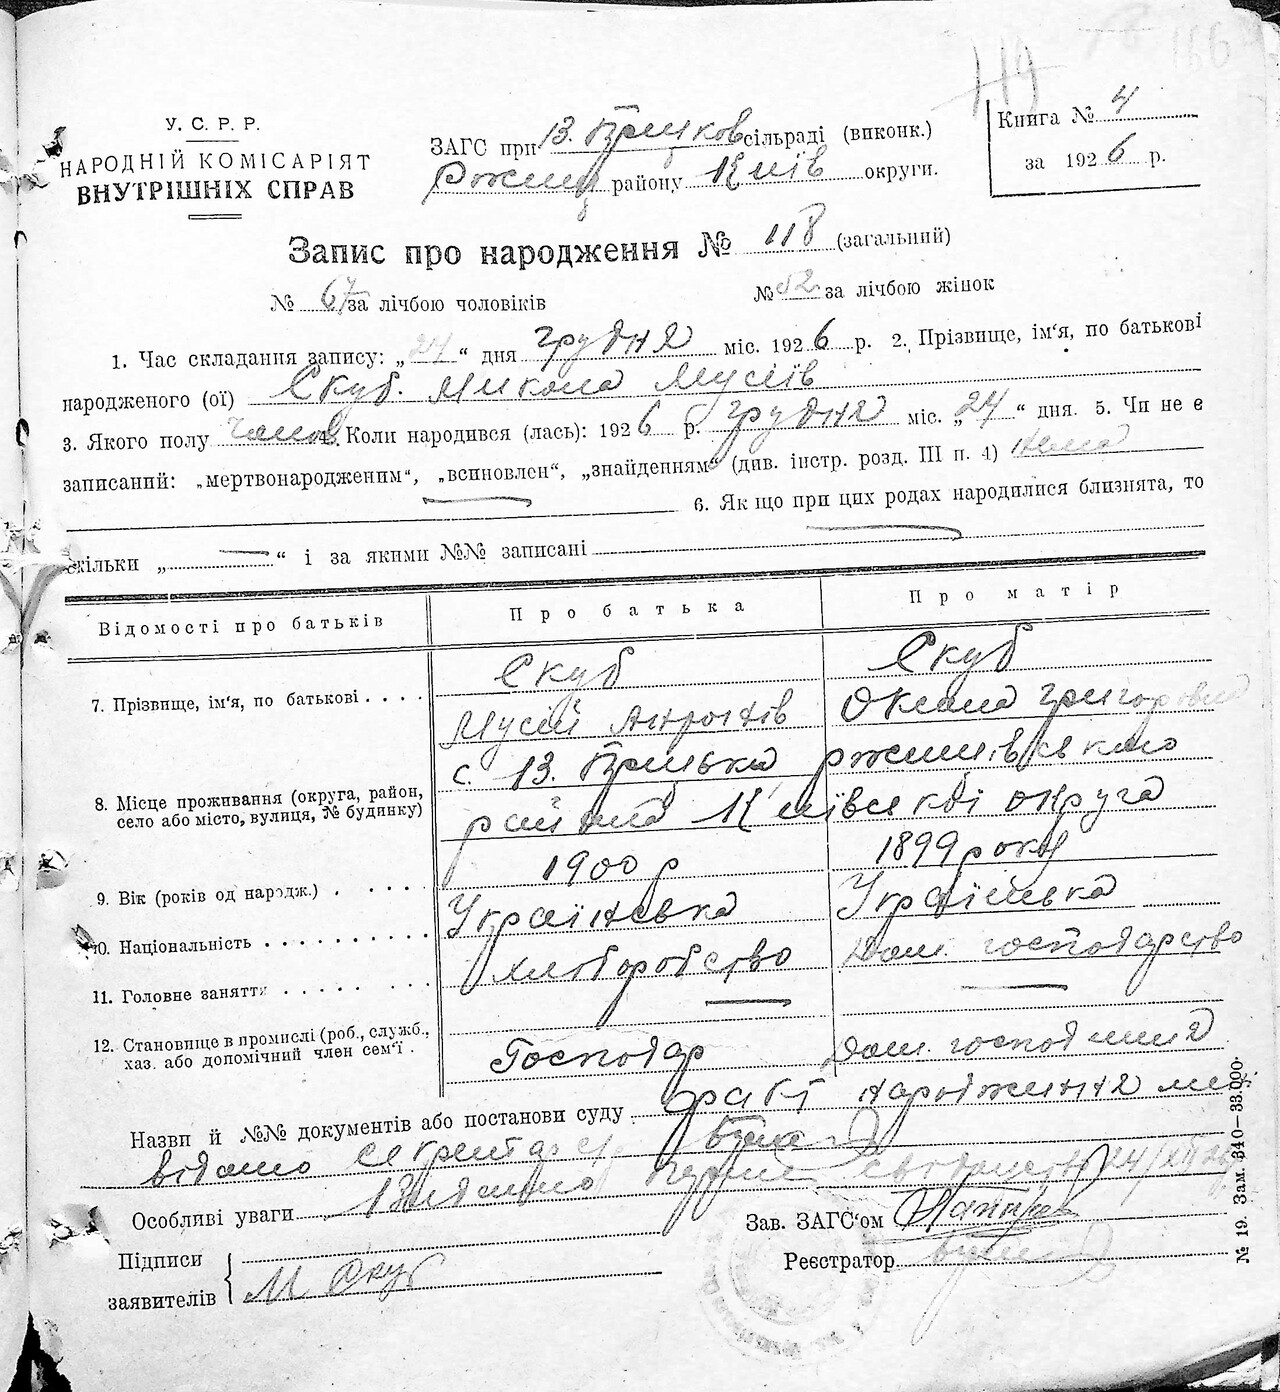 119
166
У. С. Р. Р.
НАРОДНІЙ КОМІСАРІЯТ
ВНУТРІШНІХ СПРАВ
ЗАГС при В. Грицков сільраді (виконк.)
Ржищ району Київ округи.
Книга № 4
за 1926 р.
Запис про народження № 118 (загальний)
№ 67 за лічбою чоловіків № 52 за лічбою жінок
1. Час складання запису: „24“ дня грудня міс. 1926 р. 2. Прізвище, ім'я, по батькові
народженого (ої) Скуб. Микола Мусіїв
3. Якого полу чолов. 4. Коли народився (лась): 1926 р. грудня міс. „24“ дня. 5. Чи не є
записаний: „мертвонародженим“, „всиновлен“, „знайденням“ (див. інстр. розд. III п. 4) нема
6. Як що при цих родах народилися близнята, то
скільки „ “ і за якими №№ записані
Відомості про батьків Про батька Про матір
7. Прізвище, ім'я, по батькові . . . . Скуб Скуб
Мусій Антонів Оксана Григоровна
8. Місце проживання (округа, район, село або місто, вулиця, № будинку) с. В. Грицька Ржищівського
района Київської округа
9. Вік (років од народж.) . . . . . 1900 р 1899 року
10. Національність . . . . . . . . . . Українська Українська
11. Головне заняття . . . . . . . . Хліборобство Дом. господарство
12. Становище в промислі (роб., служб., хаз. або допомічний член сем'ї . Господар Дом. господиня
Назви й №№ документів або постанови суду факт народження мені
відомо секретар
Особливі уваги Видано свідоцтво 24/XII 26
Зав. ЗАГС'ом
Підписи
заявителів М Скуб
Реєстратор
№ 19. Зам. 340—33.000.